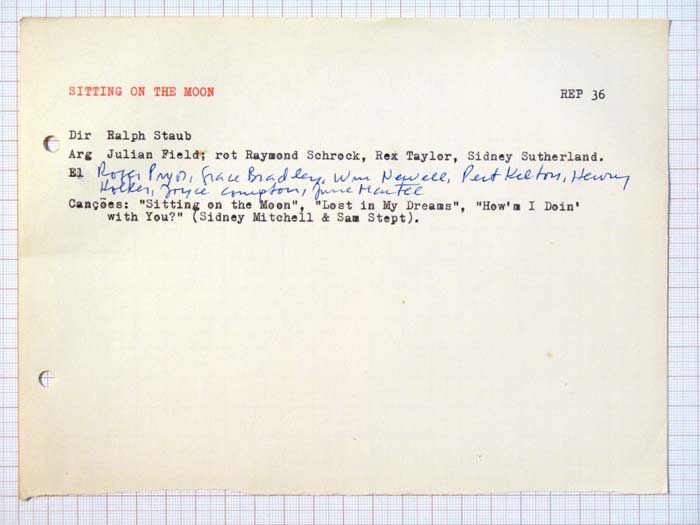 SITTING ON THE MOON REP 36
Dir Ralph Staub
Arg Julian Field; rot Raymond Schrock, Rex Taylor, Sidney Sutherland.
El Roger Pryor, Grace Bradley, Wm Newell, Pert Kelton, Henry
Kolker, Joyce Compton, June Martel
Canções: "Sitting on the Moon", "Lost in My Dreams", "How'm I Doin'
with You?" (Sidney Mitchell & Sam Stept).